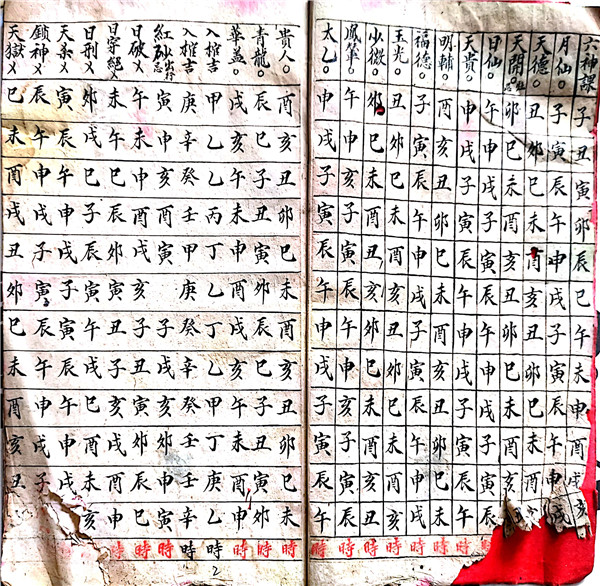 六神課 子 丑 寅 卯 辰 巳 午 未 申 酉 戌 亥
月仙○ 子 寅 辰 午 申 戌 子 寅 辰 午 申 戌
天德○ 丑 卯 巳 未 酉 亥 丑 卯 巳 未 酉 亥
天開○ 卯 巳 未 酉 亥 丑 卯 巳 未 酉 亥
日仙○ 午 申 戌 子 寅 辰 午 申 戌 子 寅 辰 時
天貴○ 申 戌 子 寅 辰 午 申 戌 子 寅 辰 午 時
明輔○ 酉 亥 丑 卯 巳 未 酉 亥 丑 卯 巳 未 時
福德○ 子 寅 辰 午 申 戌 子 寅 辰 午 申 戌 時
玉光○ 丑 卯 巳 未 酉 亥 丑 卯 巳 未 酉 亥 時
少微○ 卯 巳 未 酉 丑 亥 卯 巳 未 酉 亥 丑 時
鳳輦○ 午 申 亥 子 寅 辰 午 申 亥 子 寅 辰 時
太乙○ 申 戌 子 寅 辰 午 申 戌 子 寅 辰 午 時
貴人○ 酉 亥 丑 卯 巳 未 酉 亥 丑 卯 巳 未 時
青龍○ 辰 巳 子 丑 寅 卯 辰 巳 子 丑 寅 卯 時
華蓋○ 戌 亥 午 未 申 酉 戌 亥 午 未 酉 申 時
八權吉 甲 乙 乙 丙 丁 乙 丁 乙 甲 丁 庚 乙 時 2
八權吉 庚 辛 癸 壬 甲 庚 癸 辛 癸 壬 壬 甲 時
紅砂 寅 申 亥 酉 寅 子 戌 亥 卯 申 寅 時
日破乂 午 未 寅 酉 戌 亥 子 丑 寅 卯 辰 巳 時
日穿絕乂 未 午 巳 辰 卯 寅 丑 子 亥 戌 酉 申 時
日刑乂 卯 戌 巳 子 辰 寅 午 戌 巳 酉 未 亥
天杀乂 寅 辰 午 申 戌 子 寅 辰 午 申 戌
鎖神乂 辰 午 申 戌 子 寅 辰 午 申 戌 子
天獄乂 巳 未 酉 戌 丑 卯 巳 未 酉 亥 丑